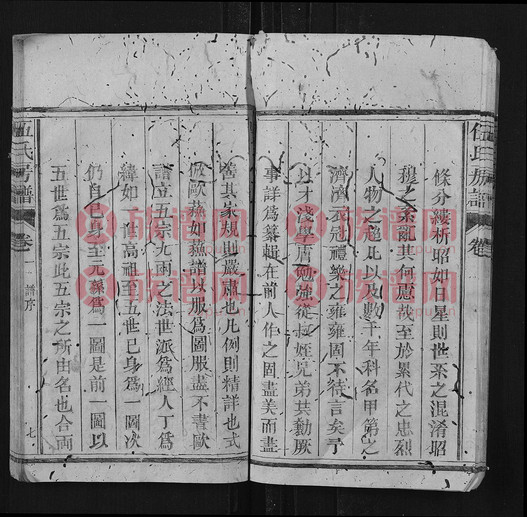 伍氏房譜 卷
條分縷析昭如日星則世系之混淆昭
穆之紊亂其何慮哉至於累代之忠烈
人物之超比以及數千年科名甲第之
濟濟衣冠禮樂之雍雍固不待言矣予
以才淺學庸勉強從叔姪兄弟共勷厥
事詳為纂輯在前人作之固盡美而盡
善其家規則嚴肅也凡例則精詳也式
倣歐蘇如蘇譜以服為圖服盡不書歐
譜立五宗九兩之法世派為經人丁為
緯如 性高祖至五世己身為 圖次
仍自己身至元孫為一圖是前一圖以
五世為五宗此五宗之所由名也合兩
伍氏房譜 卷一 譜序 七
族譜網
zupu.cn